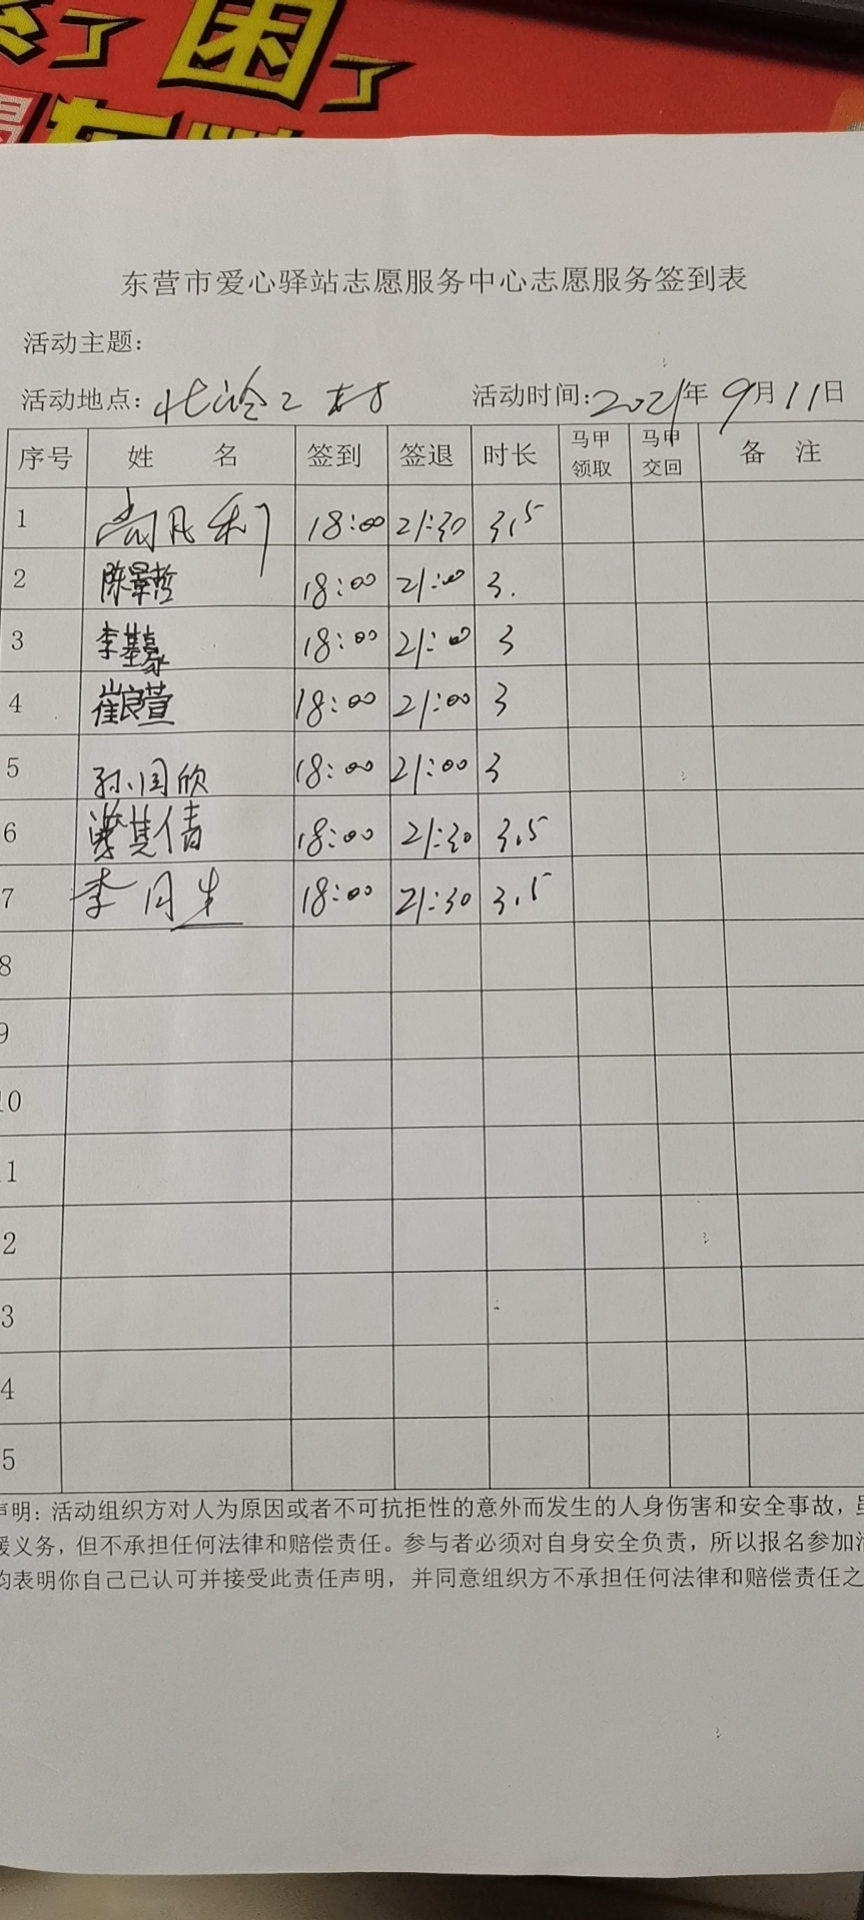 困了
东营市爱心驿站志愿服务中心志愿服务签到表
活动主题：
活动地点： 活动时间：2021年9月11日
序号 姓 名 签到 签退 时长 马甲领取 马甲交回 备 注
1 18:00 21:30 3.5
2 陈景哲 18:00 21:00 3.
3 李基豪 18:00 21:00 3
4 崔良萱 18:00 21:00 3
5 孙国欣 18:00 21:00 3
6 梁其倩 18:00 21:30 3.5
7 李月生 18:00 21:30 3.5
8
9
10
1
2
3
4
5
声明：活动组织方对人为原因或者不可抗拒性的意外而发生的人身伤害和安全事故，虽
援义务，但不承担任何法律和赔偿责任。参与者必须对自身安全负责，所以报名参加活
均表明你自己已认可并接受此责任声明，并同意组织方不承担任何法律和赔偿责任之